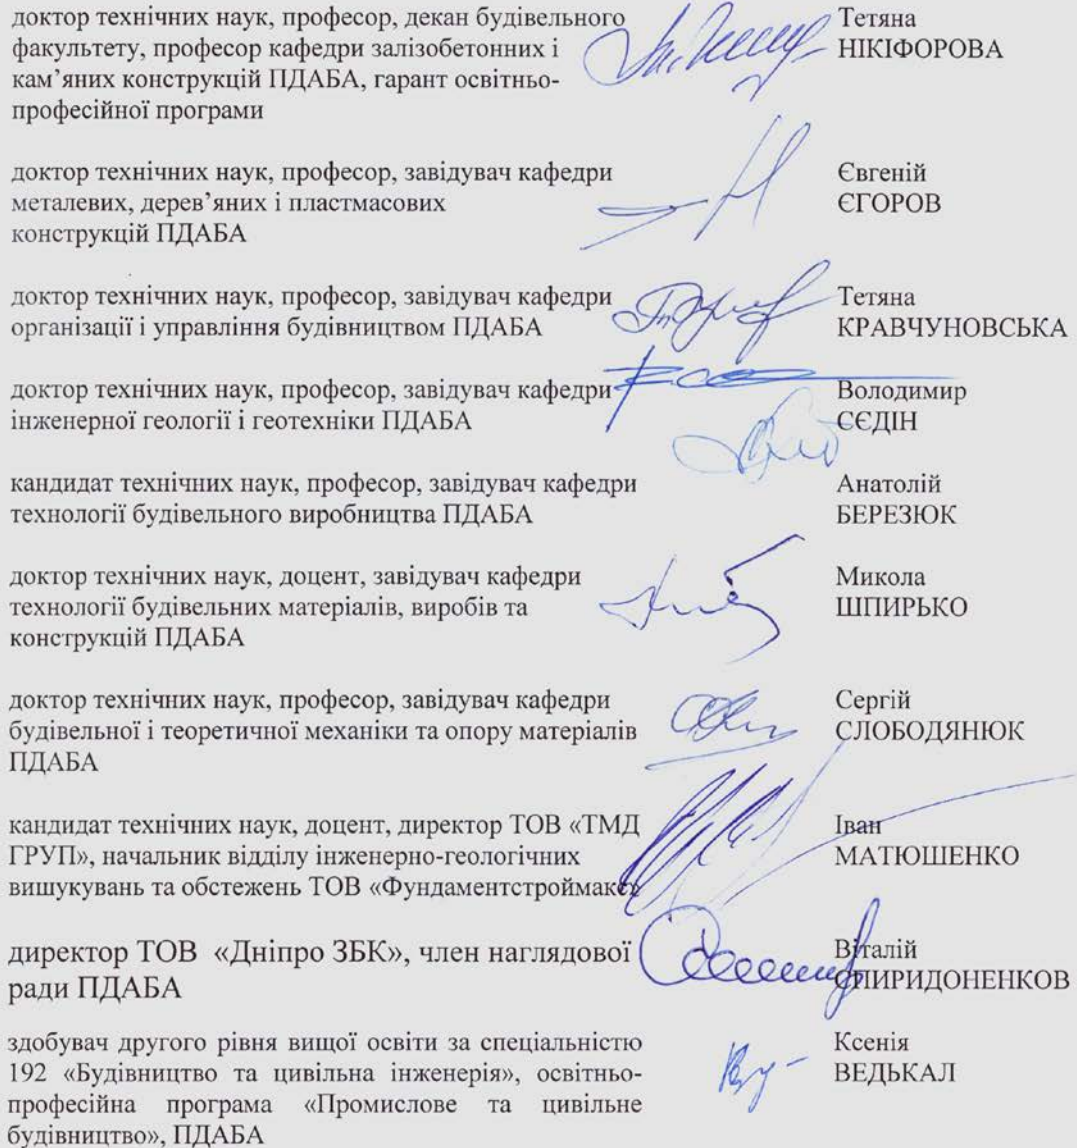 доктор технічних наук, професор, декан будівельного
факультету, професор кафедри залізобетонних і
кам’яних конструкцій ПДАБА, гарант освітньо-
професійної програми
Тетяна
НІКІФОРОВА
доктор технічних наук, професор, завідувач кафедри
металевих, дерев’яних і пластмасових
конструкцій ПДАБА
Євгеній
ЄГОРОВ
доктор технічних наук, професор, завідувач кафедри
організації і управління будівництвом ПДАБА
Тетяна
КРАВЧУНОВСЬКА
доктор технічних наук, професор, завідувач кафедри
інженерної геології і геотехніки ПДАБА
Володимир
СЄДІН
кандидат технічних наук, професор, завідувач кафедри
технології будівельного виробництва ПДАБА
Анатолій
БЕРЕЗЮК
доктор технічних наук, доцент, завідувач кафедри
технології будівельних матеріалів, виробів та
конструкцій ПДАБА
Микола
ШПИРЬКО
доктор технічних наук, професор, завідувач кафедри
будівельної і теоретичної механіки та опору матеріалів
ПДАБА
Сергій
СЛОБОДЯНЮК
кандидат технічних наук, доцент, директор ТОВ «ТМД
ГРУП», начальник відділу інженерно-геологічних
вишукувань та обстежень ТОВ «Фундаментстроймакс»
Іван
МАТЮШЕНКО
директор ТОВ «Дніпро ЗБК», член наглядової
ради ПДАБА
Віталій
СПИРИДОНЕНКОВ
здобувач другого рівня вищої освіти за спеціальністю
192 «Будівництво та цивільна інженерія», освітньо-
професійна програма «Промислове та цивільне
будівництво», ПДАБА
Ксенія
ВЕДЬКАЛ